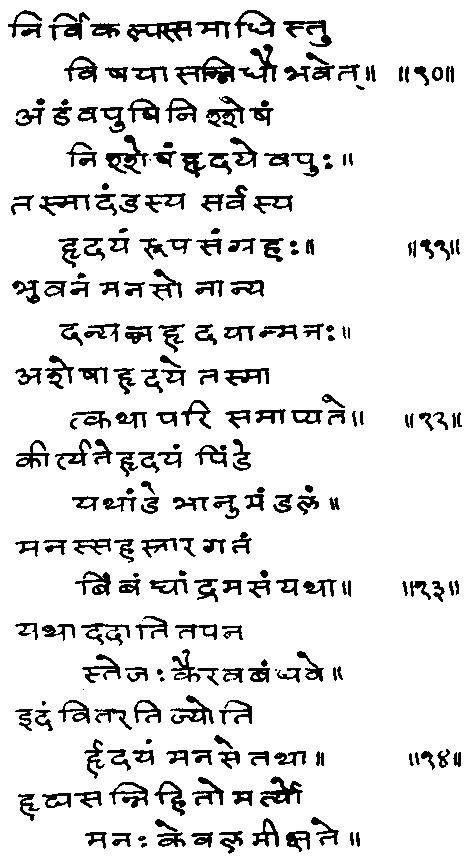 निर्विकल्पस्समाधिस्तु
विषयासन्निधौ भवेत्॥ ॥१०॥
अंडं वपुषि निश्शेषं
निश्शेषं हृदये वपुः॥
तस्मादंडस्य सर्वस्य
हृदयं रूपसंग्रहः॥ ॥११॥
भुवनं मनसो नान्य
दन्यन्न हृदयान्मनः॥
अशेषा हृदये तस्मा
त्कथा परिसमाप्यते॥ ॥१२॥
कीर्त्यते हृदयं पिंडे
यथांडे भानुमंडलं॥
मनस्सहस्रारगतं
बिंबं चांद्रमसं यथा॥ ॥१३॥
यथा ददाति तपन
स्तेजः कैरवबंधवे॥
इदं वितरति ज्योति
र्हृदयं मनसे तथा॥ ॥१४॥
हृद्यसन्निहितो मर्त्यो
मनः केवलमीक्षते॥